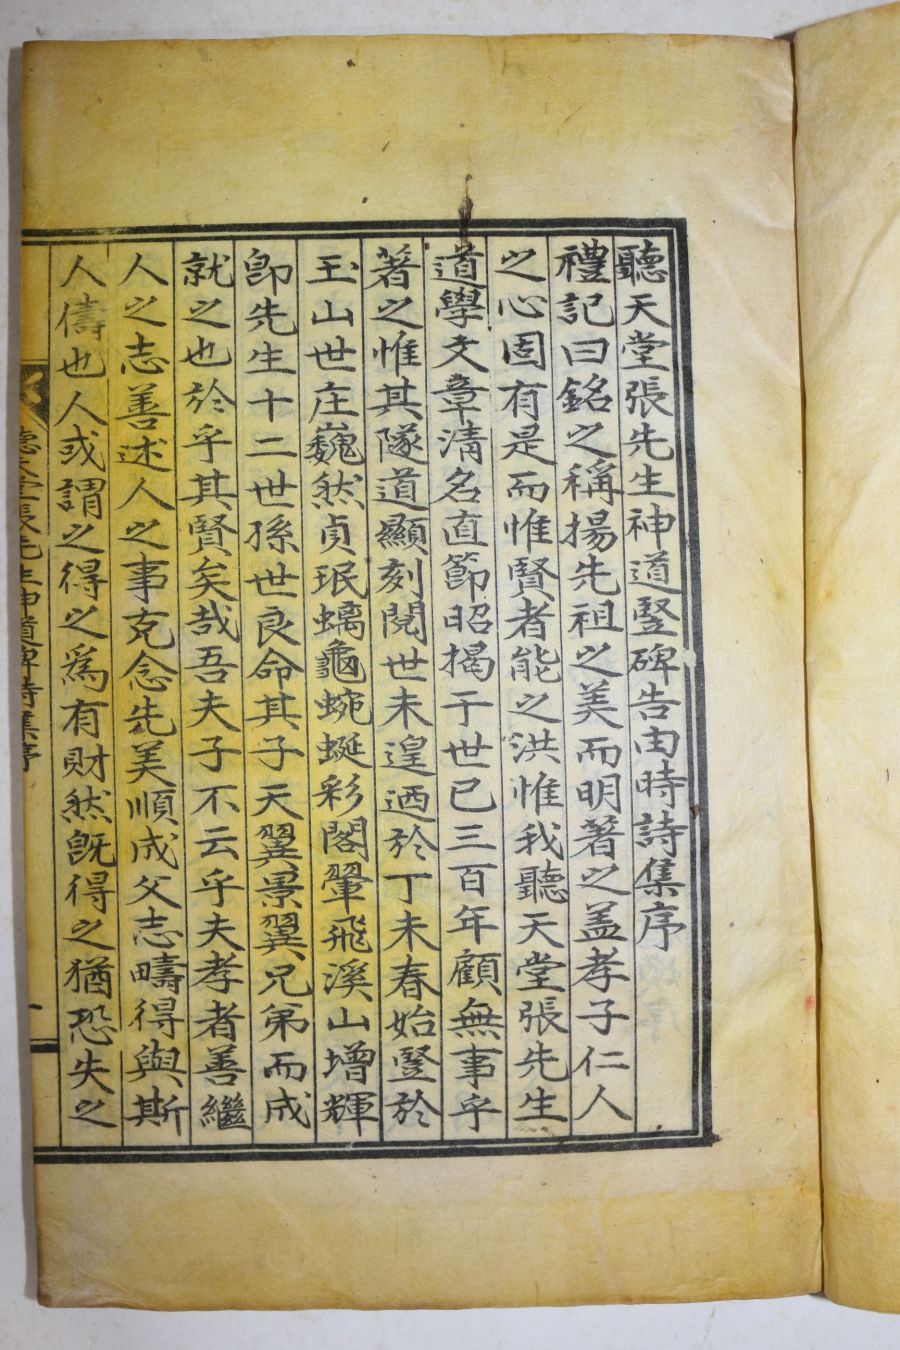 聽天堂張先生神道竪碑告由時詩集序
禮記曰銘之稱揚先祖之美而明著之盖孝子仁人
之心固有是而惟賢者能之洪惟我聽天堂張先生
道學文章清名直節昭揭于世已三百年顧無事乎
著之惟其隧道顯刻閱世未遑迺於丁未春始竪於
玉山世庄巍然貞珉螭龜蜿蜒彩閣翬飛溪山增輝
卽先生十二世孫世良命其子天翼景翼兄弟而成
就之也於乎其賢矣哉吾夫子不云乎夫孝者善繼
人之志善述人之事克念先美順成父志疇得與斯
人儔也人或謂之得之爲有財然旣得之猶恐失之
聽天堂張先生神道碑詩集序
一